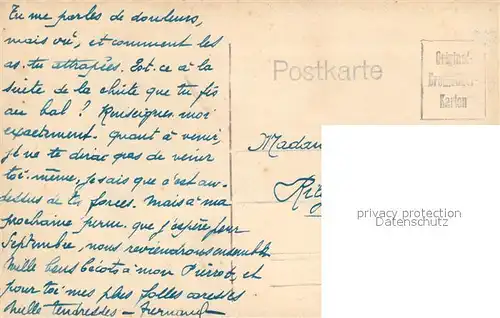 Tu me parles de douleurs,
mais où, et comment les
as-tu attrapées. Est-ce à la
suite de la chute que tu fis
au bal? Renseignes moi
exactement. Quant à venir,
je ne te dirai pas de venir
toi-même, je sais que c'est au-
dessus de tes forces. Mais à ma
prochaine perme. que j'espère pour
Septembre, nous reviendrons ensemble
Mille bons bécots à mon Pierrot, et
pour toi mes plus folles caresses
Mille tendresses - Fernand
Postkarte
Original-
Karten
Madam
privacy protection
Datenschutz